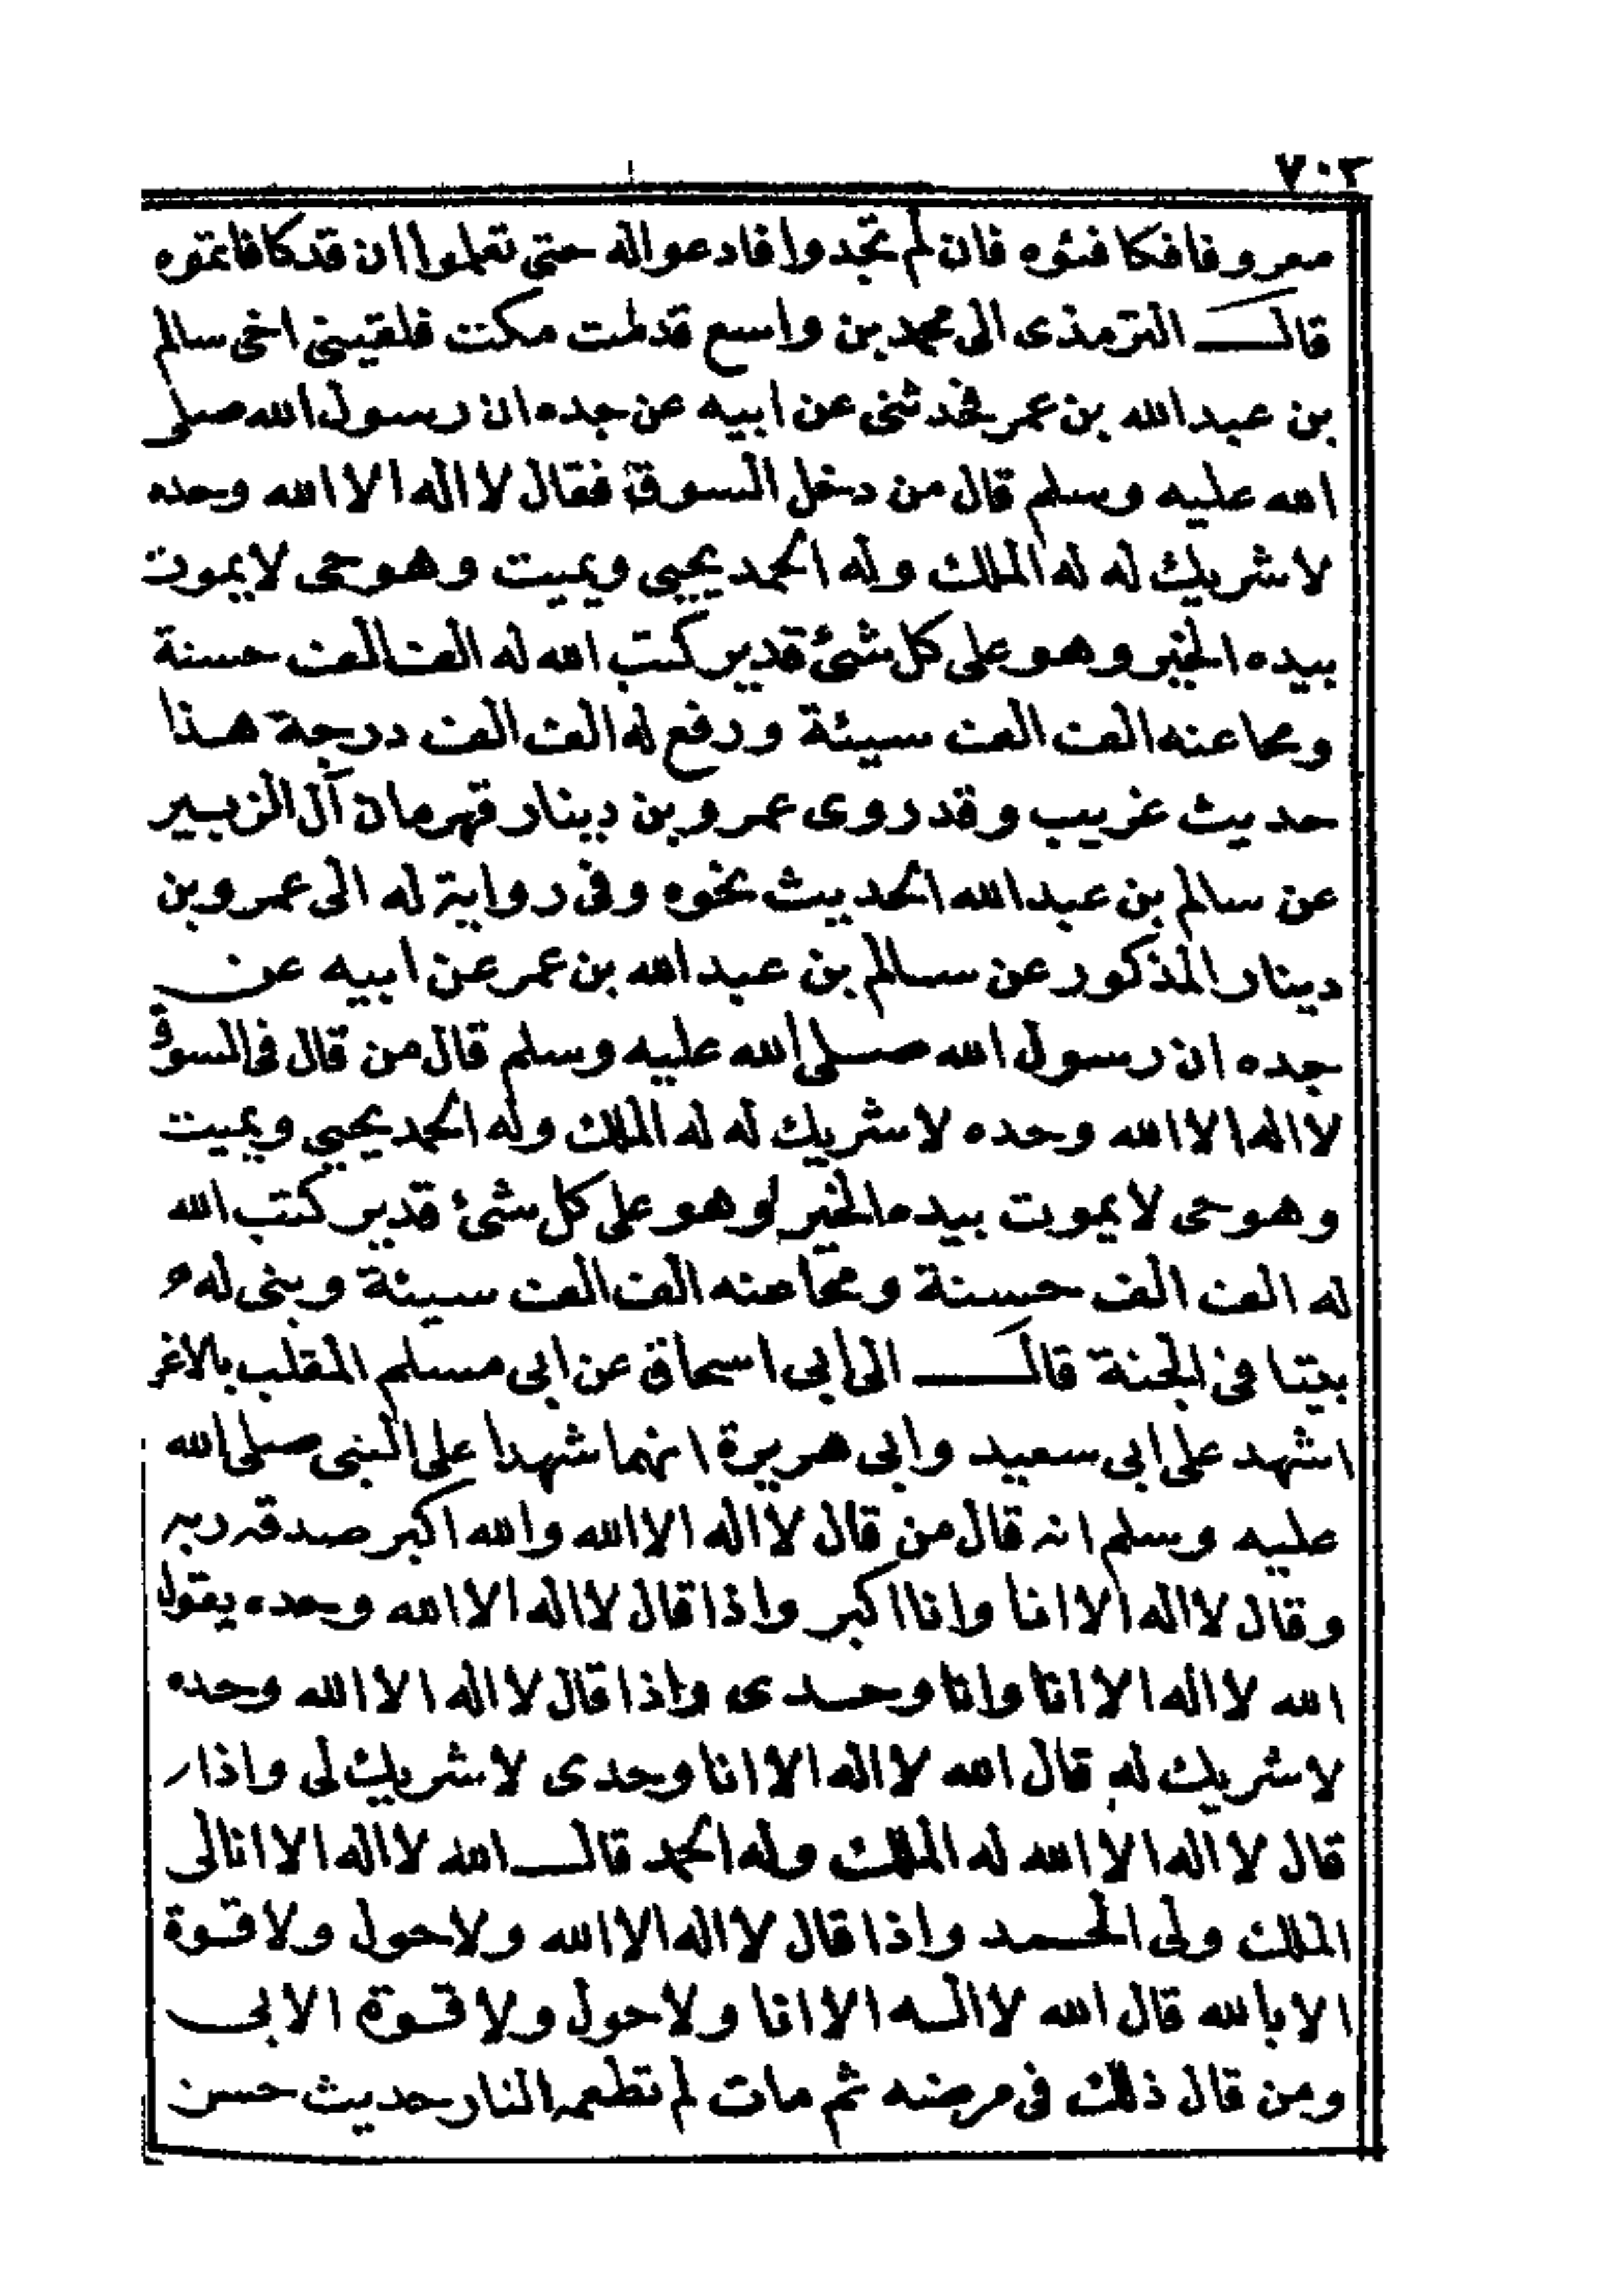 ٧٠٢
معروفا فكافئوه فان لم تجدوا فادعوا له حتى تعلموا ان قد كافاتموه
قال الترمذى الى محمد بن واسع قدمت مكت فلقينى اخى سالم
بن عبد الله بن عمر فحدثنى عن ابيه عن جده ان رسول الله صلى
الله عليه وسلم قال من دخل السوق فقال لا اله الا الله وحده
لا شريك له له الملك وله الحمد يحيى ويميت وهو حى لا يموت
بيده الخير وهو على كل شئ قدير كتب الله له الف الف حسنة
ومحا عنه الف الف سيئة ورفع له الف الف درجة هذا
حديث غريب وقد روى عمرو بن دينار قهرمان آل الزبير
عن سالم بن عبد الله الحديث نحوه وفى رواية له الى عمرو بن
دينار المذكور عن سالم بن عبد الله بن عمر عن ابيه عن
جده ان رسول الله صلى الله عليه وسلم قال من قال فى السوق
لا اله الا الله وحده لا شريك له له الملك وله الحمد يحيى ويميت
وهو حى لا يموت بيده الخير وهو على كل شئ قدير كتب الله
له الف الف حسنة ومحا عنه الف الف سيئة وبنى له
بيتا فى الجنة قال الى ابى اسحاق عن ابى مسلم المقلب بالاغر
اشهد على ابى سعيد وابى هريرة انهما شهدا على النبى صلى الله
عليه وسلم انه قال من قال لا اله الا الله والله اكبر صدقه ربه
وقال لا اله الا انا وانا اكبر واذا قال لا اله الا الله وحده يقول
الله لا اله الا انا وانا وحدى واذا قال لا اله الا الله وحده
لا شريك له قال الله لا اله الا انا وحدى لا شريك لى واذا
قال لا اله الا الله له الملك وله الحمد قال الله لا اله الا انا لى
الملك ولى الحمد واذا قال لا اله الا الله ولا حول ولا قوة
الا بالله قال الله لا اله الا انا ولا حول ولا قوة الا بى
ومن قال ذلك فى مرضه ثم مات لم تطعمه النار حديث حسن